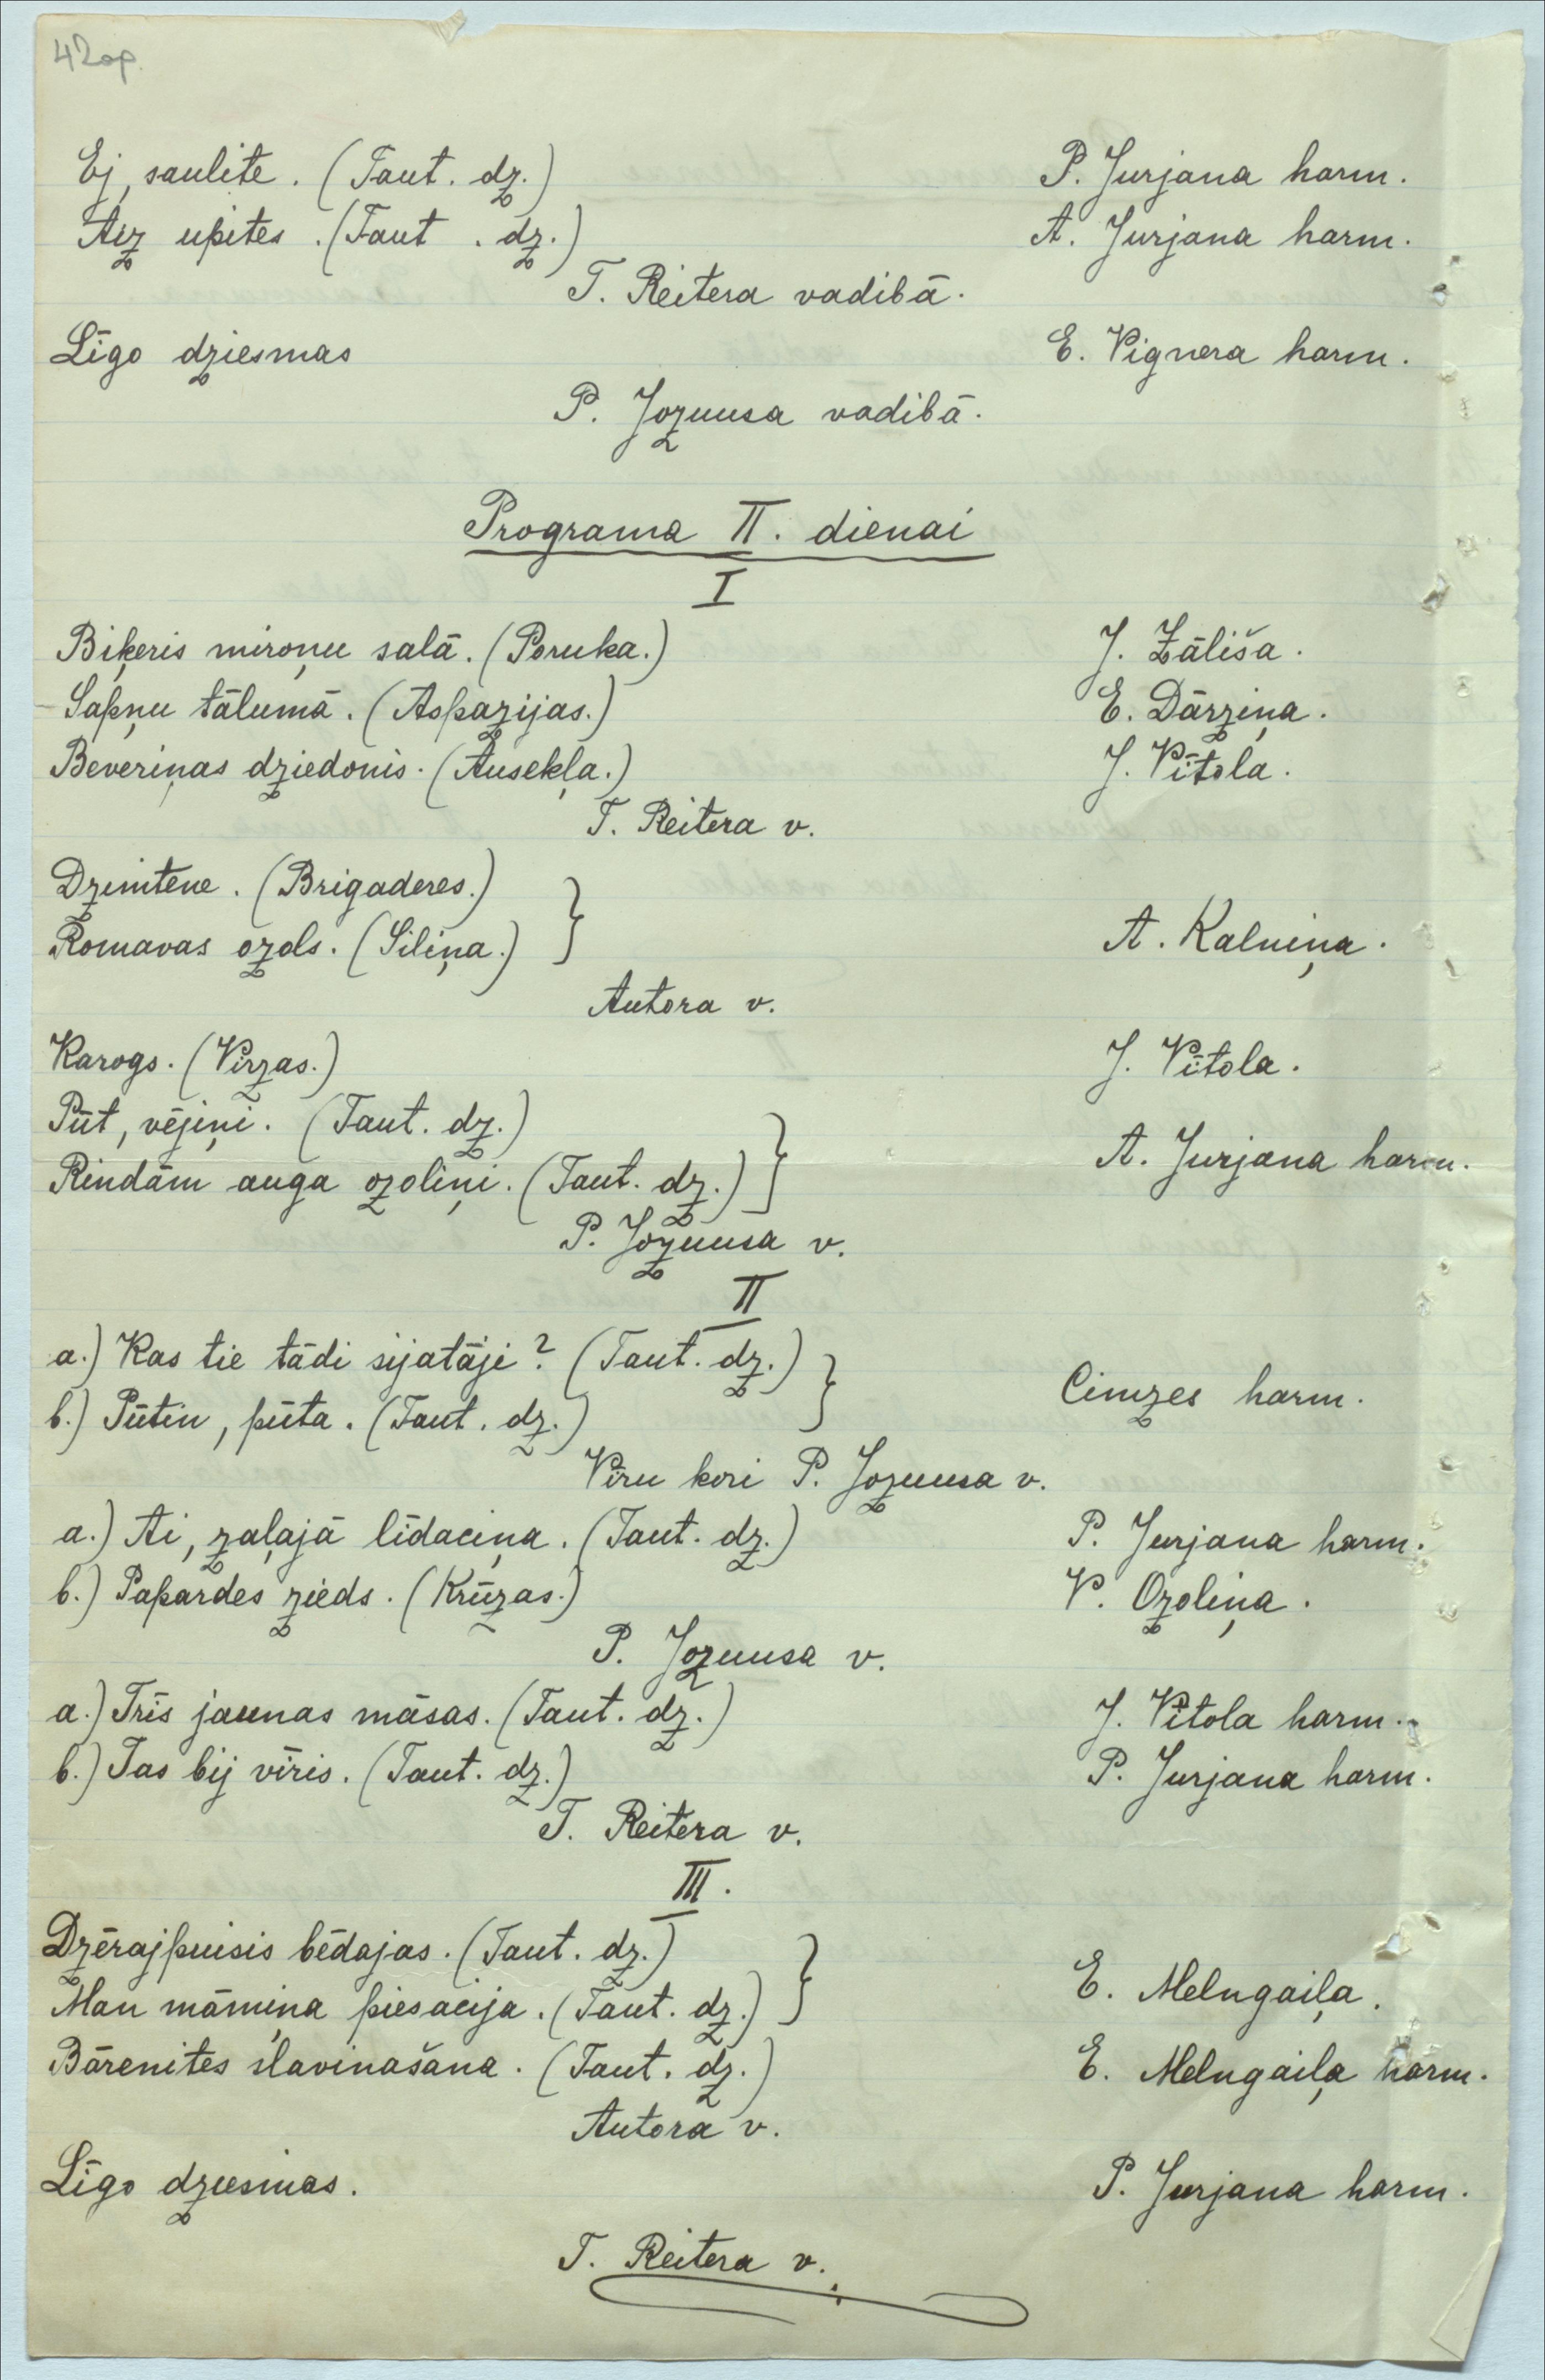 42op.
Ej, saulite. (Taut. dz.) P. Jurjana harm.
Aiz upites. (Taut. dz.) A. Jurjana harm.
T. Reitera vadibā.
Līgo dziesmas E. Vignera harm.
P. Jozuusa vadibā.
Programa II. dienai
I
Biķeris miroņu salā. (Poruka.) J. Zāliša.
Sapņu tālumā. (Aspazijas.) E. Dārziņa.
Beveriņas dziedonis. (Ausekļa.) J. Vītola.
T. Reitera v.
Dzimtene. (Brigaderes.)
Romavas ozols. (Siliņa.) } A. Kalniņa.
Autora v.
Karogs. (Virzas.) J. Vītola.
Pūt, vējiņi. (Taut. dz.)
Rindām auga ozoliņi. (Taut. dz.) } A. Jurjana harm.
P. Jozuusa v.
II
a.) Kas tie tādi sijatāji? (Taut. dz.)
b.) Pūtin, pūta. (Taut. dz.) } Cimzes harm.
Vīru kori P. Jozuusa v.
a.) Ai, zaļajā līdaciņa. (Taut. dz.) P. Jurjana harm.
b.) Papardes zieds. (Krūzas.) V. Ozoliņa.
P. Jozuusa v.
a.) Trīs jaunas māsas. (Taut. dz.) J. Vītola harm.
b.) Tas bij vīris. (Taut. dz.) P. Jurjana harm.
T. Reitera v.
III.
Dzērajpuisis bēdajas. (Taut. dz.)
Man māmiņa piesacija. (Taut. dz.) } E. Melngaiļa.
Bārenites slavinašana. (Taut. dz.) E. Melngaiļa harm.
Autora v.
Līgo dziesmas. P. Jurjana harm.
T. Reitera v.